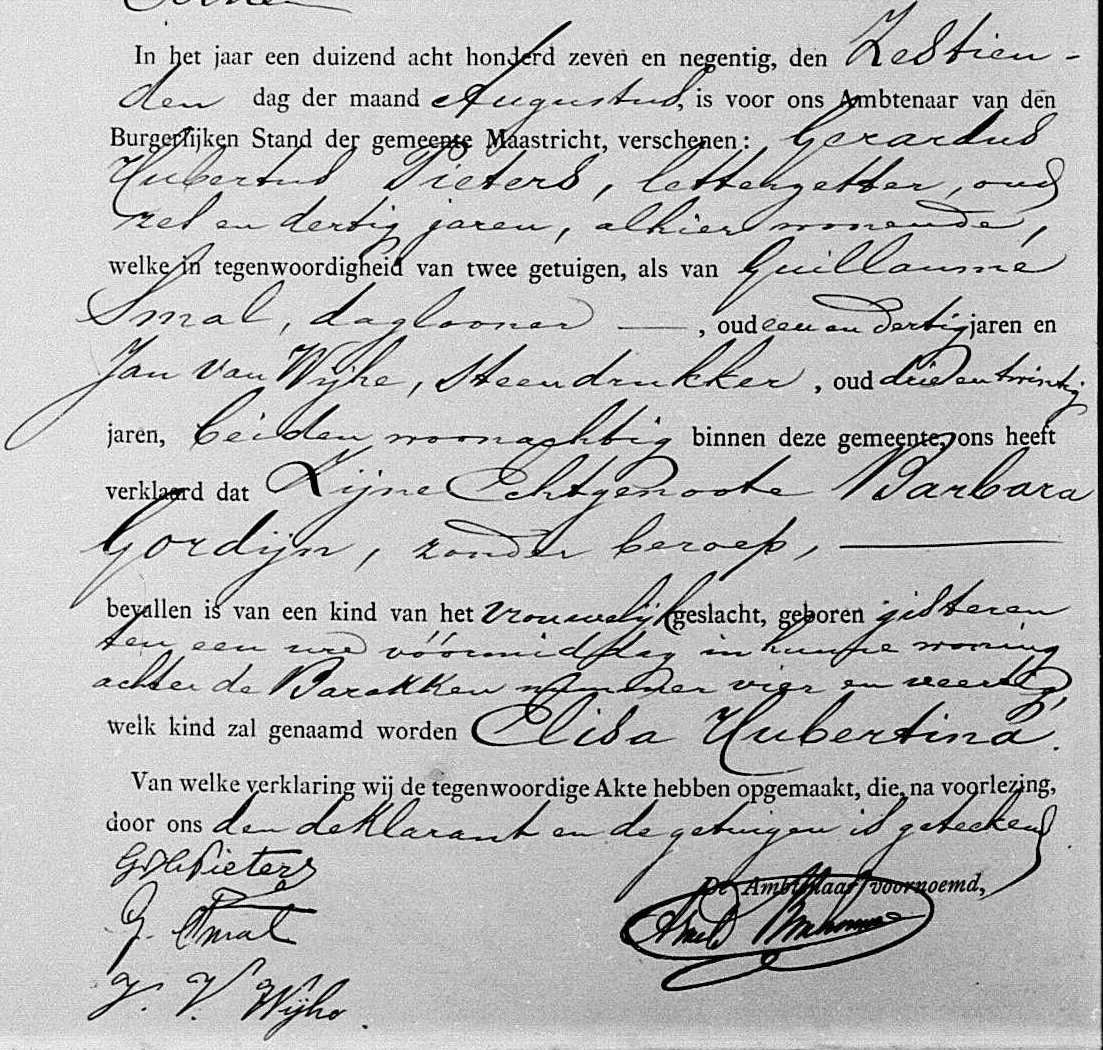 In het jaar een duizend acht honderd zeven en negentig, den Zestien-
den dag der maand Augustus, is voor ons Ambtenaar van den
Burgerlijken Stand der gemeente Maastricht, verschenen: Gerardus
Hubertus Pieters, letterzetter, oud
zes en dertig jaren, alhier wonende,
welke in tegenwoordigheid van twee getuigen, als van Guillaume
Smal, daglooner —, oud een en dertig jaren en
Jan van Wijhe, steendrukker, oud drie en twintig
jaren, beiden woonachtig binnen deze gemeente, ons heeft
verklaard dat Zijne Echtgenoote Barbara
Gordijn, zonder beroep, —
bevallen is van een kind van het vrouwelijk geslacht, geboren gisteren
ten een ure vóórmiddag in hunne woning
achter de Barakken nummer vier en veertig,
welk kind zal genaamd worden Elisa Hubertina.
Van welke verklaring wij de tegenwoordige Akte hebben opgemaakt, die, na voorlezing,
door ons den deklarant en de getuigen is geteekend
GH Pieters
De Ambtenaar voornoemd,
G. Smal
J. V. Wijhe.